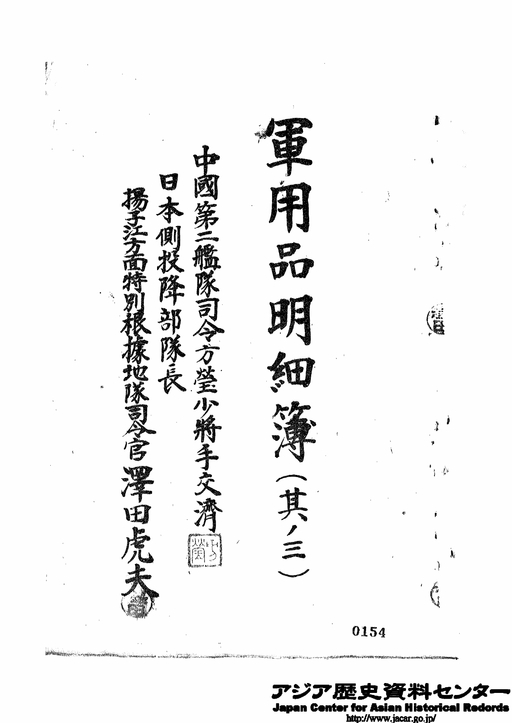 軍用品明細簿(其ノ三)
中國第二艦隊司令方瑩少將手交濟
日本側投降部隊長
揚子江方面特別根據地隊司令官澤田虎夫
0154
アジア歴史資料センター
Japan Center for Asian Historical Records
http://www.jacar.go.jp/